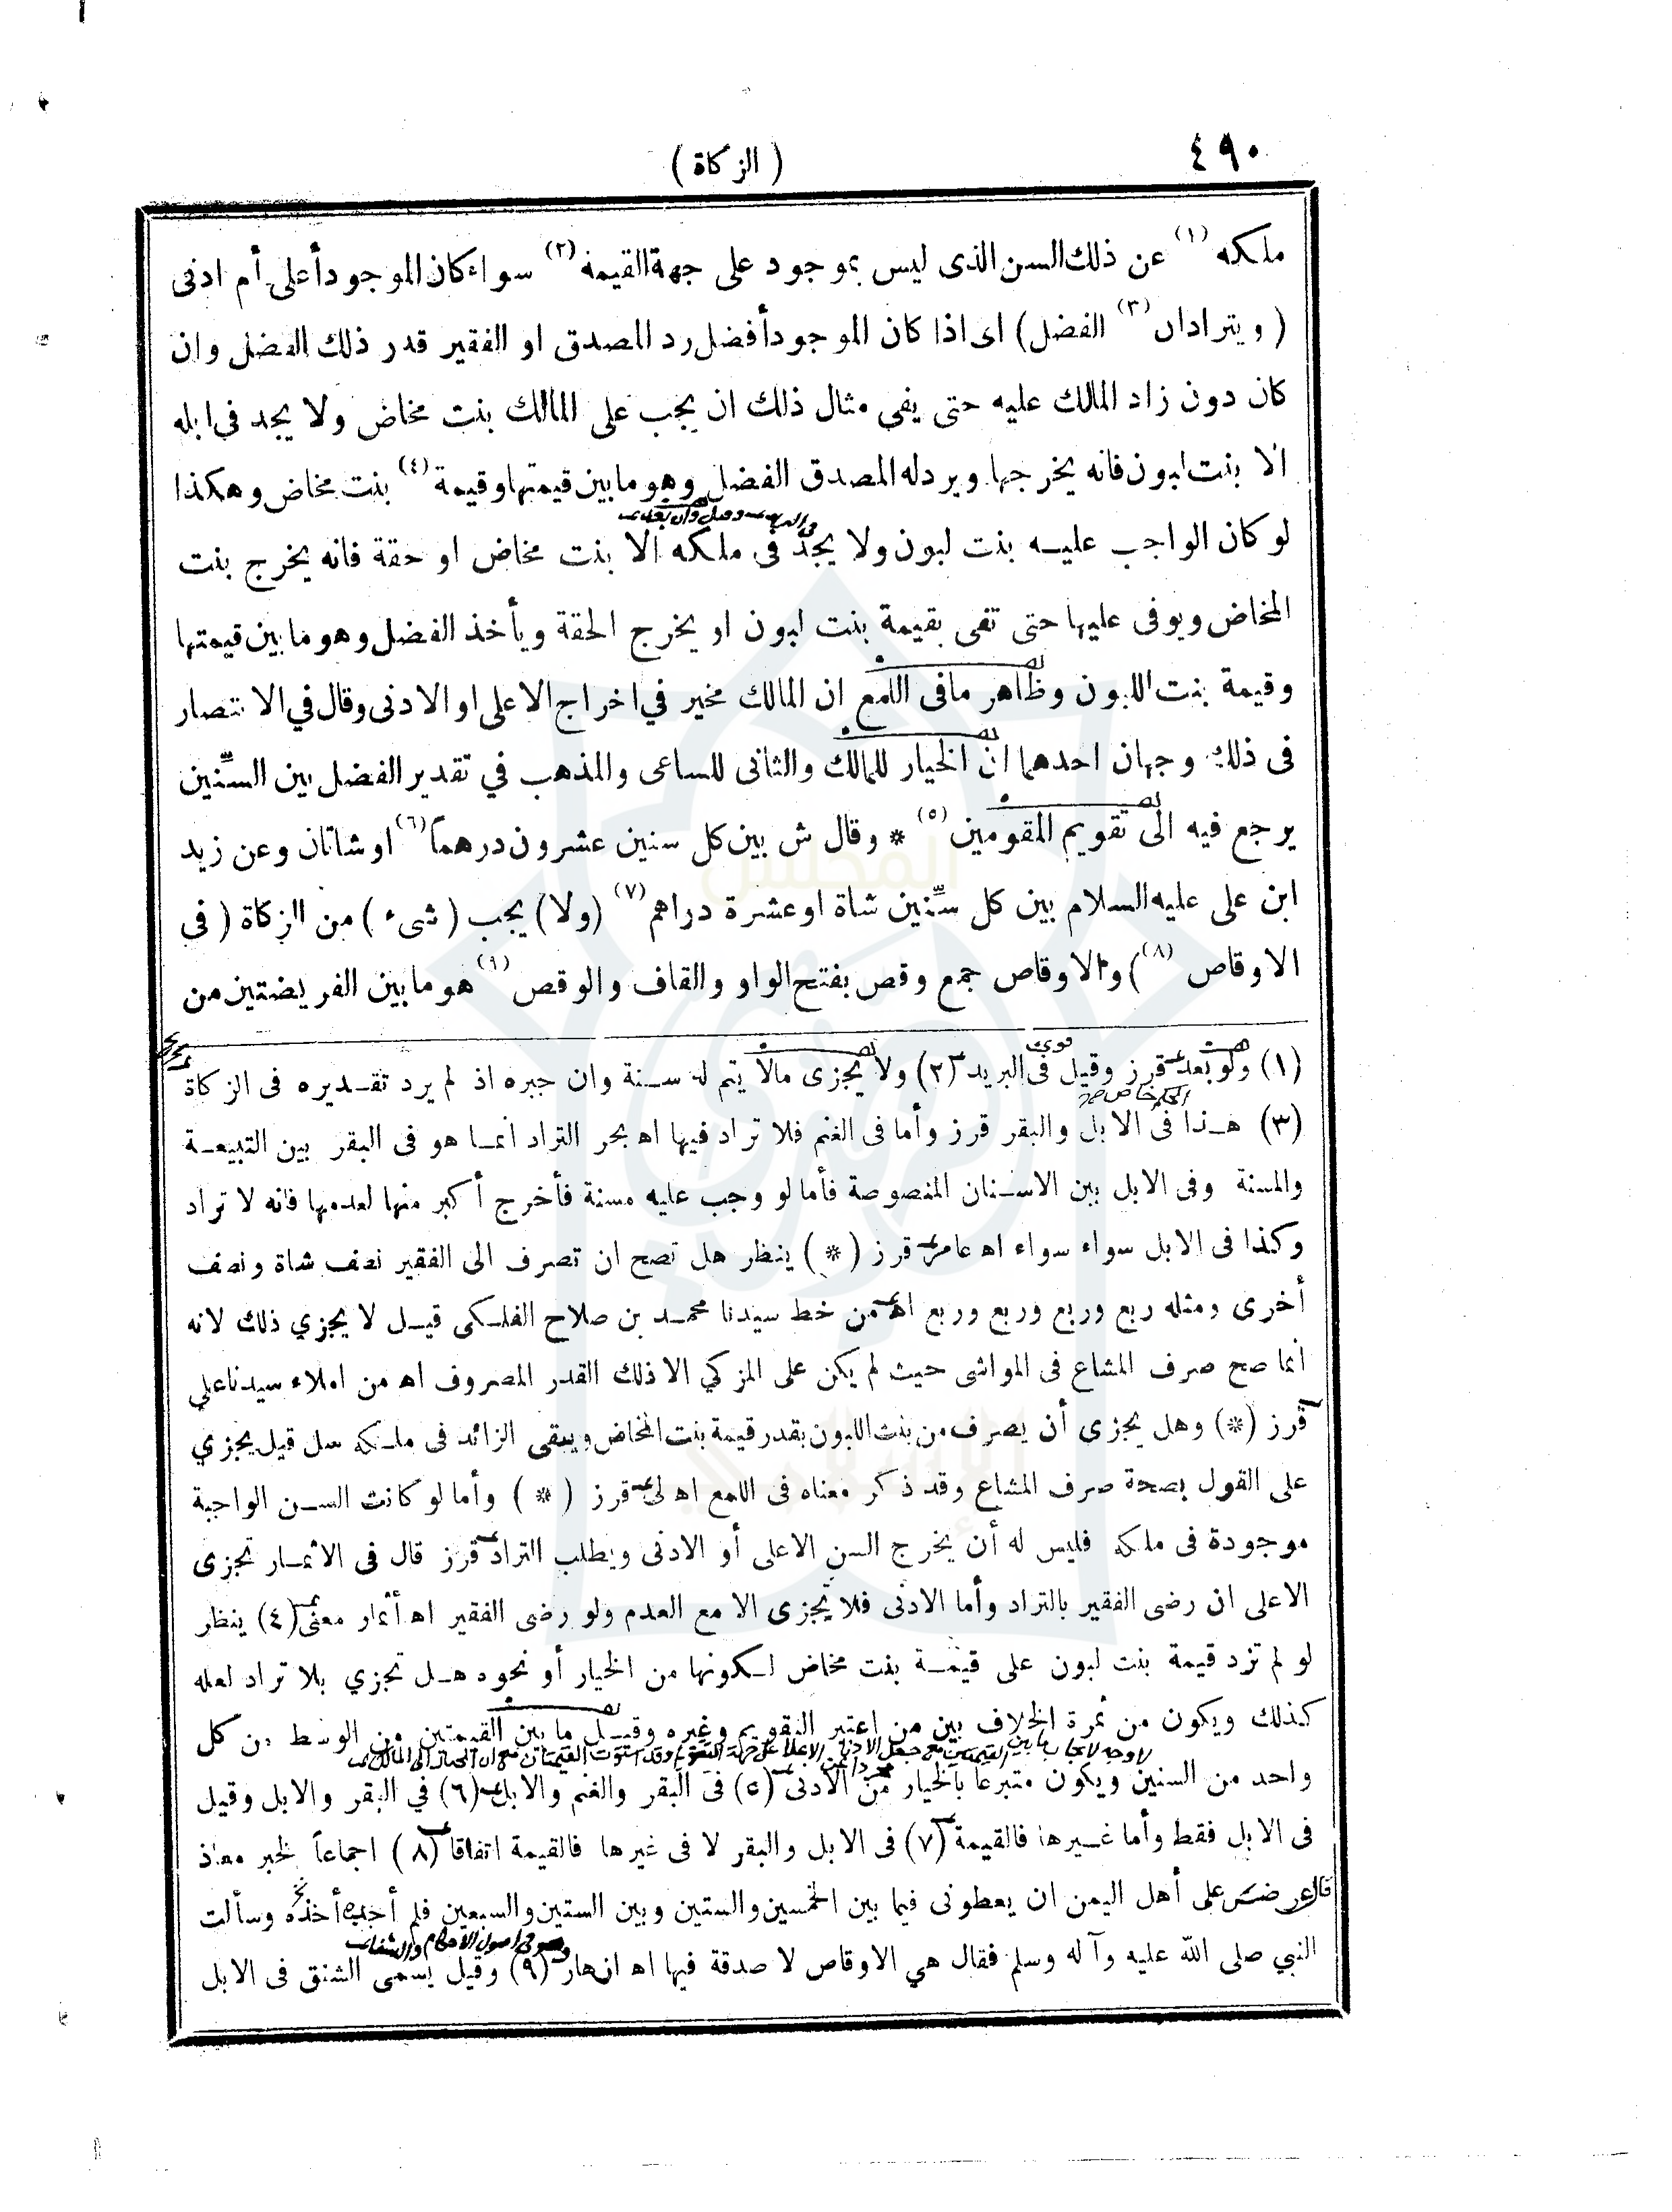 ٤٩٠
( الزكاة )
ملكه (١) عن ذلك السن الذى ليس بموجود على جهة القيمة (٢) سواء كان الموجود أعلى أم ادنى
( ويترادان (٣) الفضل ) اى اذا كان الموجود أفضل رد المصدق او الفقير قدر ذلك الفضل وان
كان دون زاد المالك عليه حتى يفى مثال ذلك ان يجب على المالك بنت مخاض ولا يجد فى ابله
الا بنت لبون فانه يخرجها ويرد له المصدق الفضل وهو ما بين قيمتها وقيمة (٤) بنت مخاض وهكذا
لو كان الواجب عليه بنت لبون ولا يجد فى ملكه الا بنت مخاض او حقة فانه يخرج بنت
المخاض ويوفى عليها حتى تفى بقيمة بنت لبون او يخرج الحقة ويأخذ الفضل وهو ما بين قيمتها
وقيمة بنت اللبون وظاهر مافى اللمع ان المالك مخير في اخراج الاعلى او الادنى وقال في الانتصار
فى ذلك وجهان احدهما ان الخيار للمالك والثانى للساعى والمذهب في تقدير الفضل بين السنّين
يرجع فيه الى تقويم المقومين (٥) * وقال ش بين كل سنين عشرون درهماً (٦) او شاتان وعن زيد
ابن على عليه السلام بين كل سنّين شاة او عشرة دراهم (٧) (ولا) يجب ( شىء ) من الزكاة ( فى
الاوقاص (٨) ) والاوقاص جمع وقص بفتح الواو والقاف والوقص (٩) هو ما بين الفريضتين من
(١) ولو بعد قرز وقيل فى البريد (٢) ولا يجزى مالا يتم له سنة وان جبره اذ لم يرد تقديره فى الزكاة
(٣) هذا فى الابل والبقر قرز وأما فى الغنم فلا تراد فيها اه بحر التراد انما هو فى البقر بين التبيعة
والمسنة وفى الابل بين الاسنان المنصوصة فأما لو وجب عليه مسنة فأخرج أكبر منها لعدمها فانه لا تراد
وكذا فى الابل سواء سواء اه عامر قرز ( * ) ينظر هل تصح ان تصرف الى الفقير نصف شاة ونصف
أخرى ومثله ربع وربع وربع وربع اه من خط سيدنا محمد بن صلاح الفلكى قيل لا يجزي ذلك لانه
انما صح صرف المشاع فى المواشى حيث لم يكن على المزكي الا ذلك القدر المصروف اه من املاء سيدنا على
قرز (*) وهل يجزى أن يصرف من بنت اللبون بقدر قيمة بنت المخاض ويبقى الزائد فى ملكه سل قيل يجزي
على القول بصحة صرف المشاع وقد ذكر معناه فى اللمع اه لى قرز ( * ) وأما لو كانت السن الواجبة
موجودة فى ملكه فليس له أن يخرج السن الاعلى أو الادنى ويطلب التراد قرز قال فى الاثمار تجزى
الاعلى ان رضى الفقير بالتراد وأما الادنى فلا يجزى الا مع العدم ولو رضى الفقير اه أثمار معنى (٤) ينظر
لو لم تزد قيمة بنت لبون على قيمة بنت مخاض لكونها من الخيار أو نحوه هل تجزي بلا تراد لعله
كذلك ويكون من ثمرة الخلاف بين من اعتبر التقويم وغيره وقيل ما بين القيمتين من الوسط من كل
واحد من السنين ويكون متبرعاً بالخيار من الادنى (٥) فى البقر والغنم والابل (٦) في البقر والابل وقيل
فى الابل فقط وأما غيرها فالقيمة (٧) فى الابل والبقر لا فى غيرها فالقيمة اتفاقا (٨) اجماعاً لخبر معاذ
قال عرضت على أهل اليمن ان يعطونى فيما بين الخمسين والستين وبين الستين والسبعين فلم أخذه وسألت
النبي صلى الله عليه وآله وسلم فقال هي الاوقاص لا صدقة فيها اه ازهار (٩) وقيل يسمى الشنق فى الابل